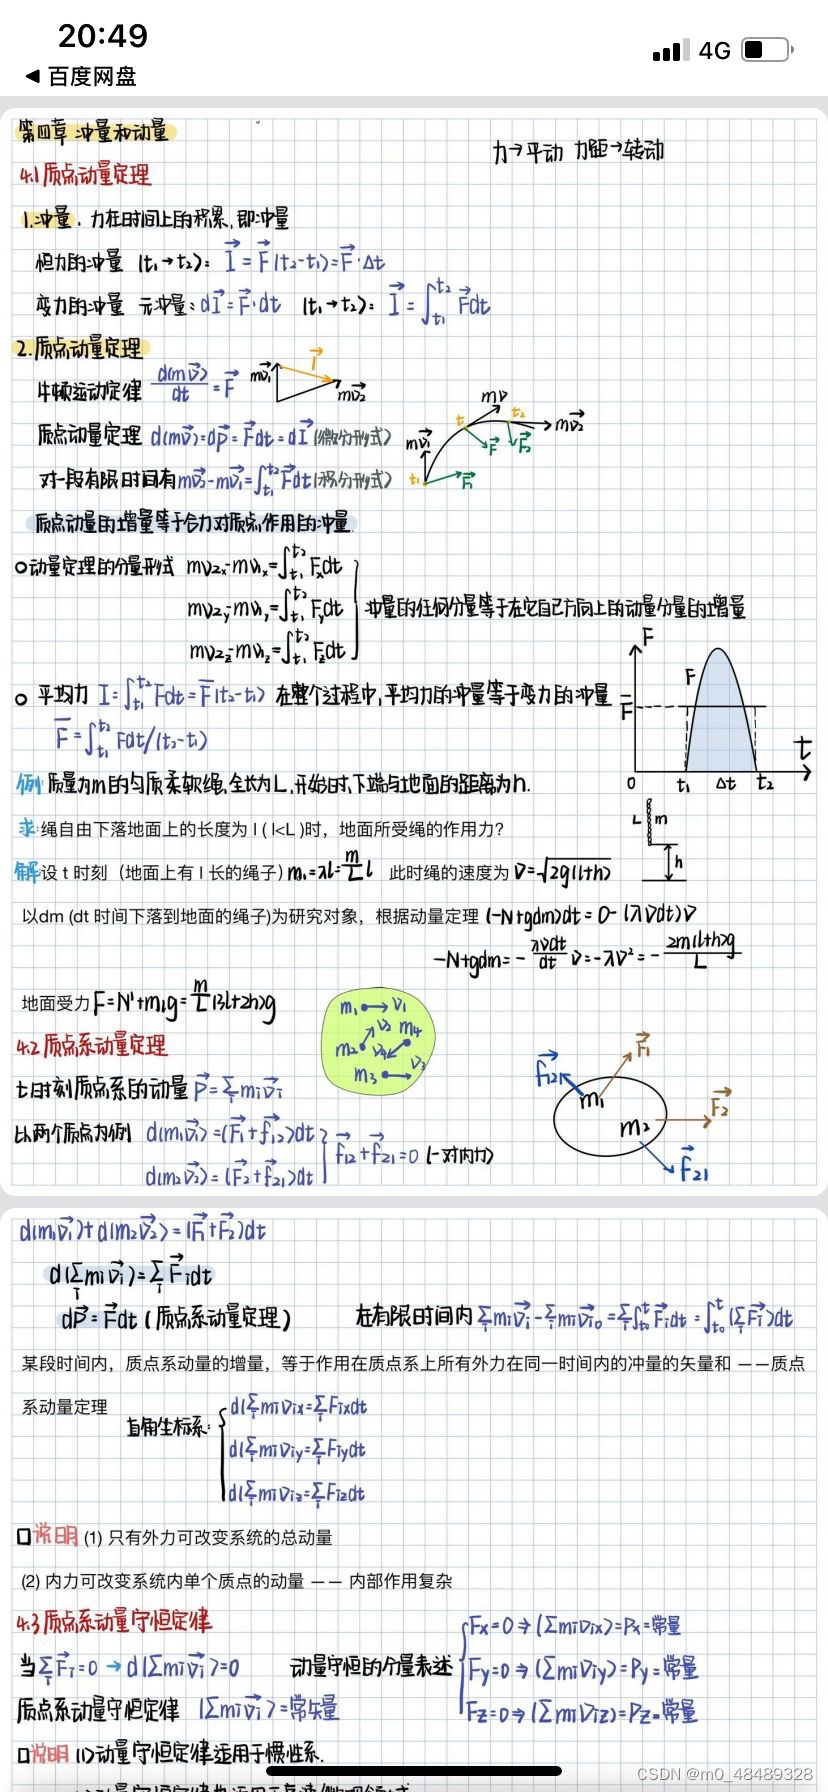 20:49
4G
◀ 百度网盘
第四章 冲量和动量
力→平动 力距→转动
4.1 质点动量定理
1.冲量. 力在时间上的积累,即冲量
恒力的冲量 (t₁→t₂): I⃗ = F⃗(t₂-t₁)=F⃗·Δt
变力的冲量 元冲量: dI⃗=F⃗·dt (t₁→t₂): I⃗=∫ₜ₁ᵗ²F⃗dt
2.质点动量定理
牛顿运动定律 d(mv⃗)/dt = F⃗
mv⃗₁ I⃗ mv⃗₂
质点动量定理 d(mv⃗)=dp⃗=F⃗dt=dI⃗(微分形式)
mv⃗₁ t mv t₂ mv⃗₂ F⃗ F⃗₂ t₁ F⃗₁
对一段有限时间有mv⃗₂-mv⃗₁=∫ₜ₁ᵗ²F⃗dt(积分形式)
质点动量的增量等于合力对质点作用的冲量
o动量定理的分量形式 mv₂ₓ-mv₁ₓ=∫ₜ₁ᵗ²Fₓdt
mv₂y-mv₁y=∫ₜ₁ᵗ²Fydt 冲量的任何分量等于在它自己方向上的动量分量的增量
mv₂z-mv₁z=∫ₜ₁ᵗ²Fzdt
o 平均力 I=∫ₜ₁ᵗ²Fdt=F̅(t₂-t₁) 在整个过程中,平均力的冲量等于变力的冲量
F̅=∫ₜ₁ᵗ²Fdt/(t₂-t₁)
F F F̅ 0 t₁ Δt t₂ t
例:质量为m的匀质柔软绳,全长为L,开始时,下端与地面的距离为h.
求:绳自由下落地面上的长度为 l ( l<L )时，地面所受绳的作用力?
L m h
解:设 t 时刻（地面上有 l 长的绳子）m₁=λl=m/L l 此时绳的速度为 v=√2g(l+h)
以dm (dt 时间下落到地面的绳子)为研究对象，根据动量定理 (-N+gdm)dt = 0-(λvdt)v
-N+gdm=-λvdt/dt v=-λv²=-2m(l+h)g/L
地面受力 F=N'+m₁g=m/L(3l+2h)g
4.2 质点系动量定理
m₁ v₁ v₂ m₄ m₂ v₄ m₃ v₃
t时刻质点系的动量 P⃗=Σᵢmᵢv⃗ᵢ
以两个质点为例 d(m₁v⃗₁)=(F⃗₁+f⃗₁₂)dt
d(m₂v⃗₂)=(F⃗₂+f⃗₂₁)dt f⃗₁₂+f⃗₂₁=0 (一对内力)
f⃗₁₂ F⃗₁ m₁ F⃗₂ m₂ f⃗₂₁
d(m₁v⃗₁)+d(m₂v⃗₂)=(F⃗₁+F⃗₂)dt
d(Σᵢmᵢv⃗ᵢ)=ΣᵢF⃗ᵢdt
dP⃗=F⃗dt (质点系动量定理) 在有限时间内 Σᵢmᵢv⃗ᵢ-Σᵢmᵢv⃗ᵢ₀=Σᵢ∫ₜ₀ᵗF⃗ᵢdt=∫ₜ₀ᵗ(ΣᵢF⃗ᵢ)dt
某段时间内，质点系动量的增量，等于作用在质点系上所有外力在同一时间内的冲量的矢量和 ——质点
系动量定理
直角坐标系: d(Σᵢmᵢvᵢx=ΣᵢFᵢxdt
d(Σᵢmᵢvᵢy=ΣᵢFᵢydt
d(Σᵢmᵢvᵢz=ΣᵢFᵢzdt
口说明 (1) 只有外力可改变系统的总动量
(2) 内力可改变系统内单个质点的动量 —— 内部作用复杂
4.3 质点系动量守恒定律
当ΣᵢF⃗ᵢ=0 → d(Σmᵢv⃗ᵢ)=0
动量守恒的分量表述 Fx=0→(Σmᵢvᵢx)=Px=常量
Fy=0→(Σmᵢvᵢy)=Py=常量
Fz=0→(Σmᵢvᵢz)=Pz=常量
质点系动量守恒定律 (Σmᵢv⃗ᵢ)=常矢量
口说明 (1)动量守恒定律适用于惯性系.
CSDN @m0_48489328